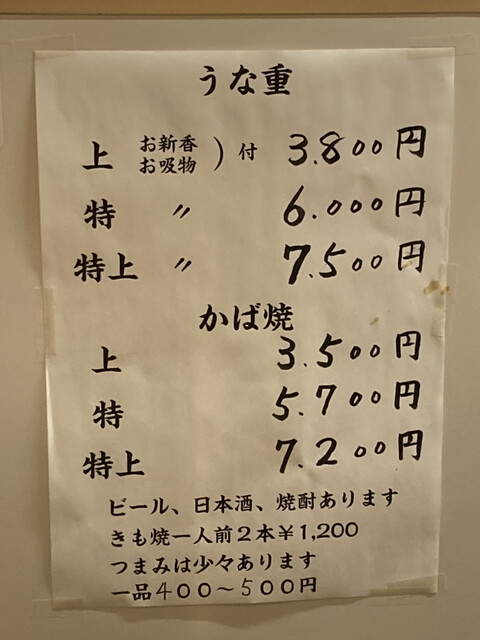 うな重
上 お新香 お吸物 ）付 3.800円
特 〃 6.000円
特上 〃 7.500円
かば焼
上 3.500円
特 5.700円
特上 7.200円
ビール、日本酒、焼酎あります
きも焼一人前２本￥１,２００
つまみは少々あります
一品４００～５００円